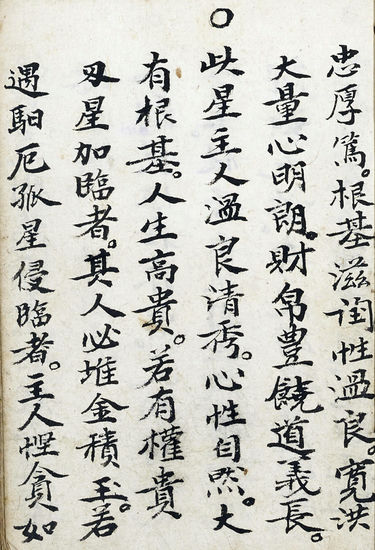 忠厚篤。根基滋潤性温良。寬洪
大量心明朗。財帛豊饒道義長。
○此星主人温良清秀。心性自然。大
有根基。人生高貴。若有權貴
刄星加臨者。其人必堆金積玉。若
遇馹厄孤星侵臨者。主人慳貪如